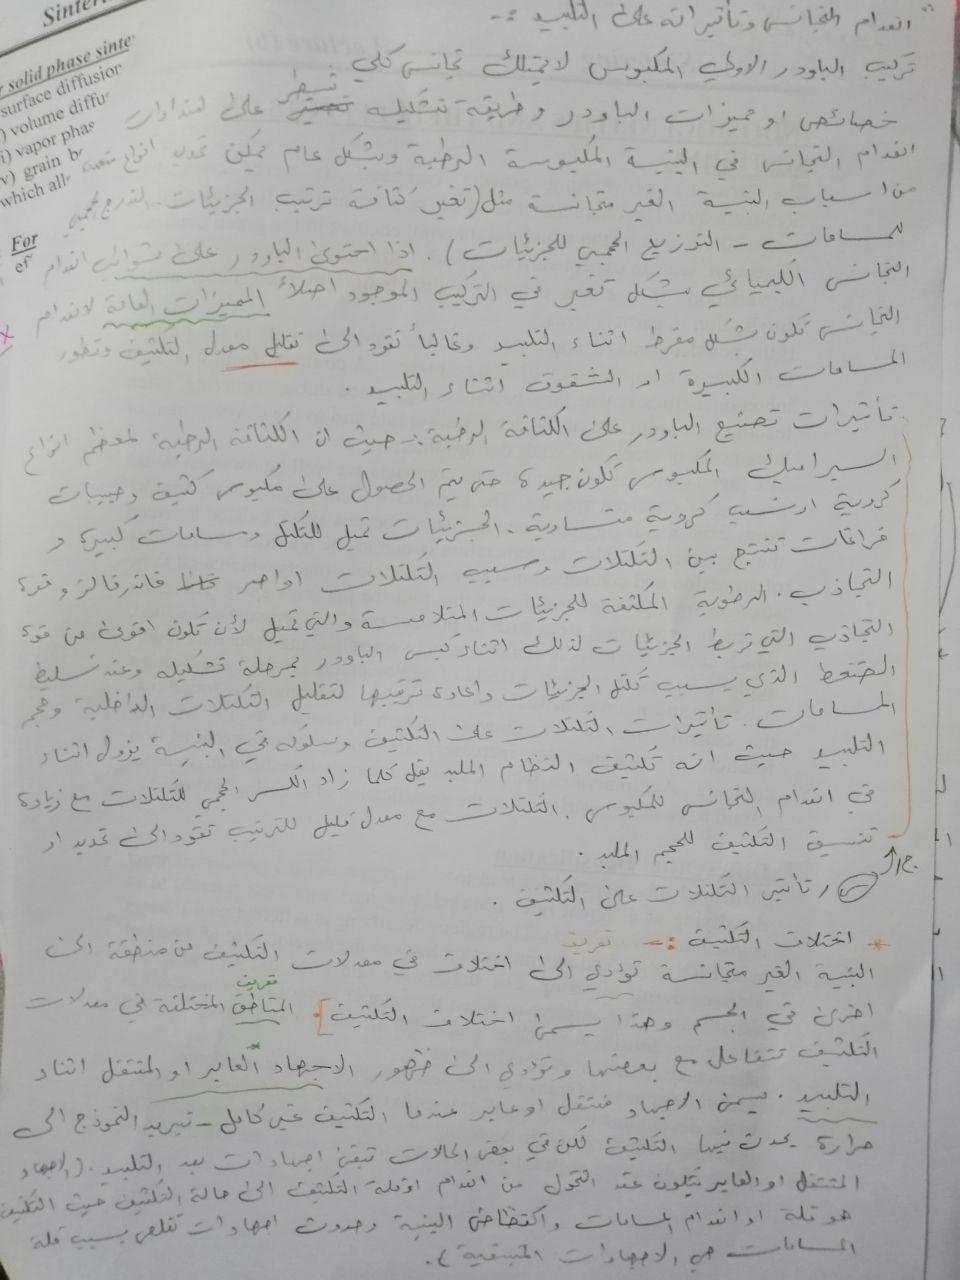 Sinter
r solid phase sinte
surface diffusion
) volume diffu
i) vapor phas
v) grain b
which all
For
ef
انعدام التجانس وتأثيراته على التلبيد :-
تركيب الباودر الاولي المكبوس لا يمتلك تجانس كلي .
تسيطر
خصائص او مميزات الباودر وطريقة تشكيله على امتدادات
انعدام التجانس في البنية المكبوسة الرطبة وبشكل عام يمكن تحديد انواع متعددة
من اسباب البنية الغير متجانسة مثل (تغير كثافة ترتيب الجزيئات - التدرج الحجمي
للمسامات - التوزيع الحجمي للجزيئات ) . اذا احتوى الباودر على شوائب انعدام
التجانس الكيميائي بشكل تغير في التركيب الموجود اصلاً المميزات العامة لانعدام
التجانس تكون بشكل مفرط اثناء التلبيد وغالباً تقود الى تقليل معدل التكثيف وتطور
المسامات الكبيرة او الشقوق اثناء التلبيد .
تأثيرات تصنيع الباودر على الكثافة الرطبة :- حيث ان الكثافة الرطبة لمعظم انواع
السيراميك المكبوس تكون جيدة حتى يتم الحصول على مكبوس كثيف وحبيبات
كروية او نسب كروية متساوية . الجزيئات تميل للتكتل ومسامات كبيرة و
فراغات تنتج بين التكتلات وسبب التكتلات اواصر فاندرفالز وقوة
التجاذب . الرطوبة المكثفة للجزيئات المتلامسة والتي تميل لأن تكون اقوى من قوة
التجاذب التي تربط الجزيئات لذلك اثناء كبس الباودر بمرحلة تشكيله وعند تسليط
الضغط الذي يسبب تكتل الجزيئات واعادة ترتيبها لتقليل التكتلات الداخلية وحجم
المسامات . تأثيرات التكتلات على التكثيف وسلوكه في البنية يزول اثناء
التلبيد حيث انه تكثيف النظام الملبد يقل كلما زاد الكسر الحجمي للتكتلات مع زيادة
في انعدام التجانس للمكبوس . التكتلات مع معدل قليل للترتيب تقود الى تحديد او
تنسيق التكثيف للحجم الملبد .
/ تأثير التكتلات على التكثيف .
* اختلاف التكثيف :- تعريف
البنية الغير متجانسة تؤدي الى اختلاف في معدلات التكثيف من منطقة الى
تعريف
اخرى في الجسم وهذا يسمى اختلاف التكثيف . المناطق المختلفة في معدلات
التكثيف تتفاعل مع بعضها وتؤدي الى ظهور الاجهاد العابر او المنتقل اثناء
التلبيد . يسمى الاجهاد منتقل او عابر عندما التكثيف غير كامل - تبريد النموذج الى
حرارة يحدث فيها التكثيف لكن في بعض الحالات تبقى اجهادات بعد التلبيد . (الاجهاد
المنتقل او العابر يتكون عند التحول من انعدام او قلة التكثيف الى حالة التكثيف حيث التكثيف
هو قلة او انعدام المسامات واكتظاظ البنية وحدوث اجهادات تقلص بسبب قلة
المسامات هي الاجهادات المتبقية ) .